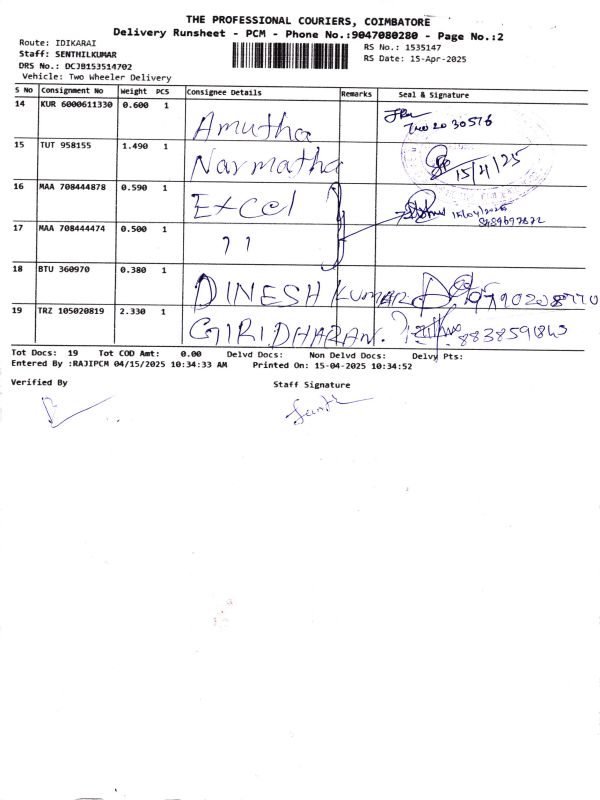 THE PROFESSIONAL COURIERS, COIMBATORE
Delivery Runsheet - PCM - Phone No.:9047080280 - Page No.:2
Route: IDIKARAI
Staff: SENTHILKUMAR
DRS No.: DCJB153514702
Vehicle: Two Wheeler Delivery
RS No.: 1535147
RS Date: 15-Apr-2025
S No Consignment No Weight PCS Consignee Details Remarks Seal & Signature
14 KUR 6000611330 0.600 1 Amutha
15 TUT 958155 1.490 1 Narmatha 15/4/25
16 MAA 708444878 0.590 1 Excel 15/04/2025
17 MAA 708444474 0.500 1 ,,
18 BTU 360970 0.380 1 DINESH KUMAR
19 TRZ 105020819 2.330 1 GIRIDHARAN.
Tot Docs: 19 Tot COD Amt: 0.00 Delvd Docs: Non Delvd Docs: Delvy Pts:
Entered By :RAJIPCM 04/15/2025 10:34:33 AM Printed On: 15-04-2025 10:34:52
Verified By Staff Signature